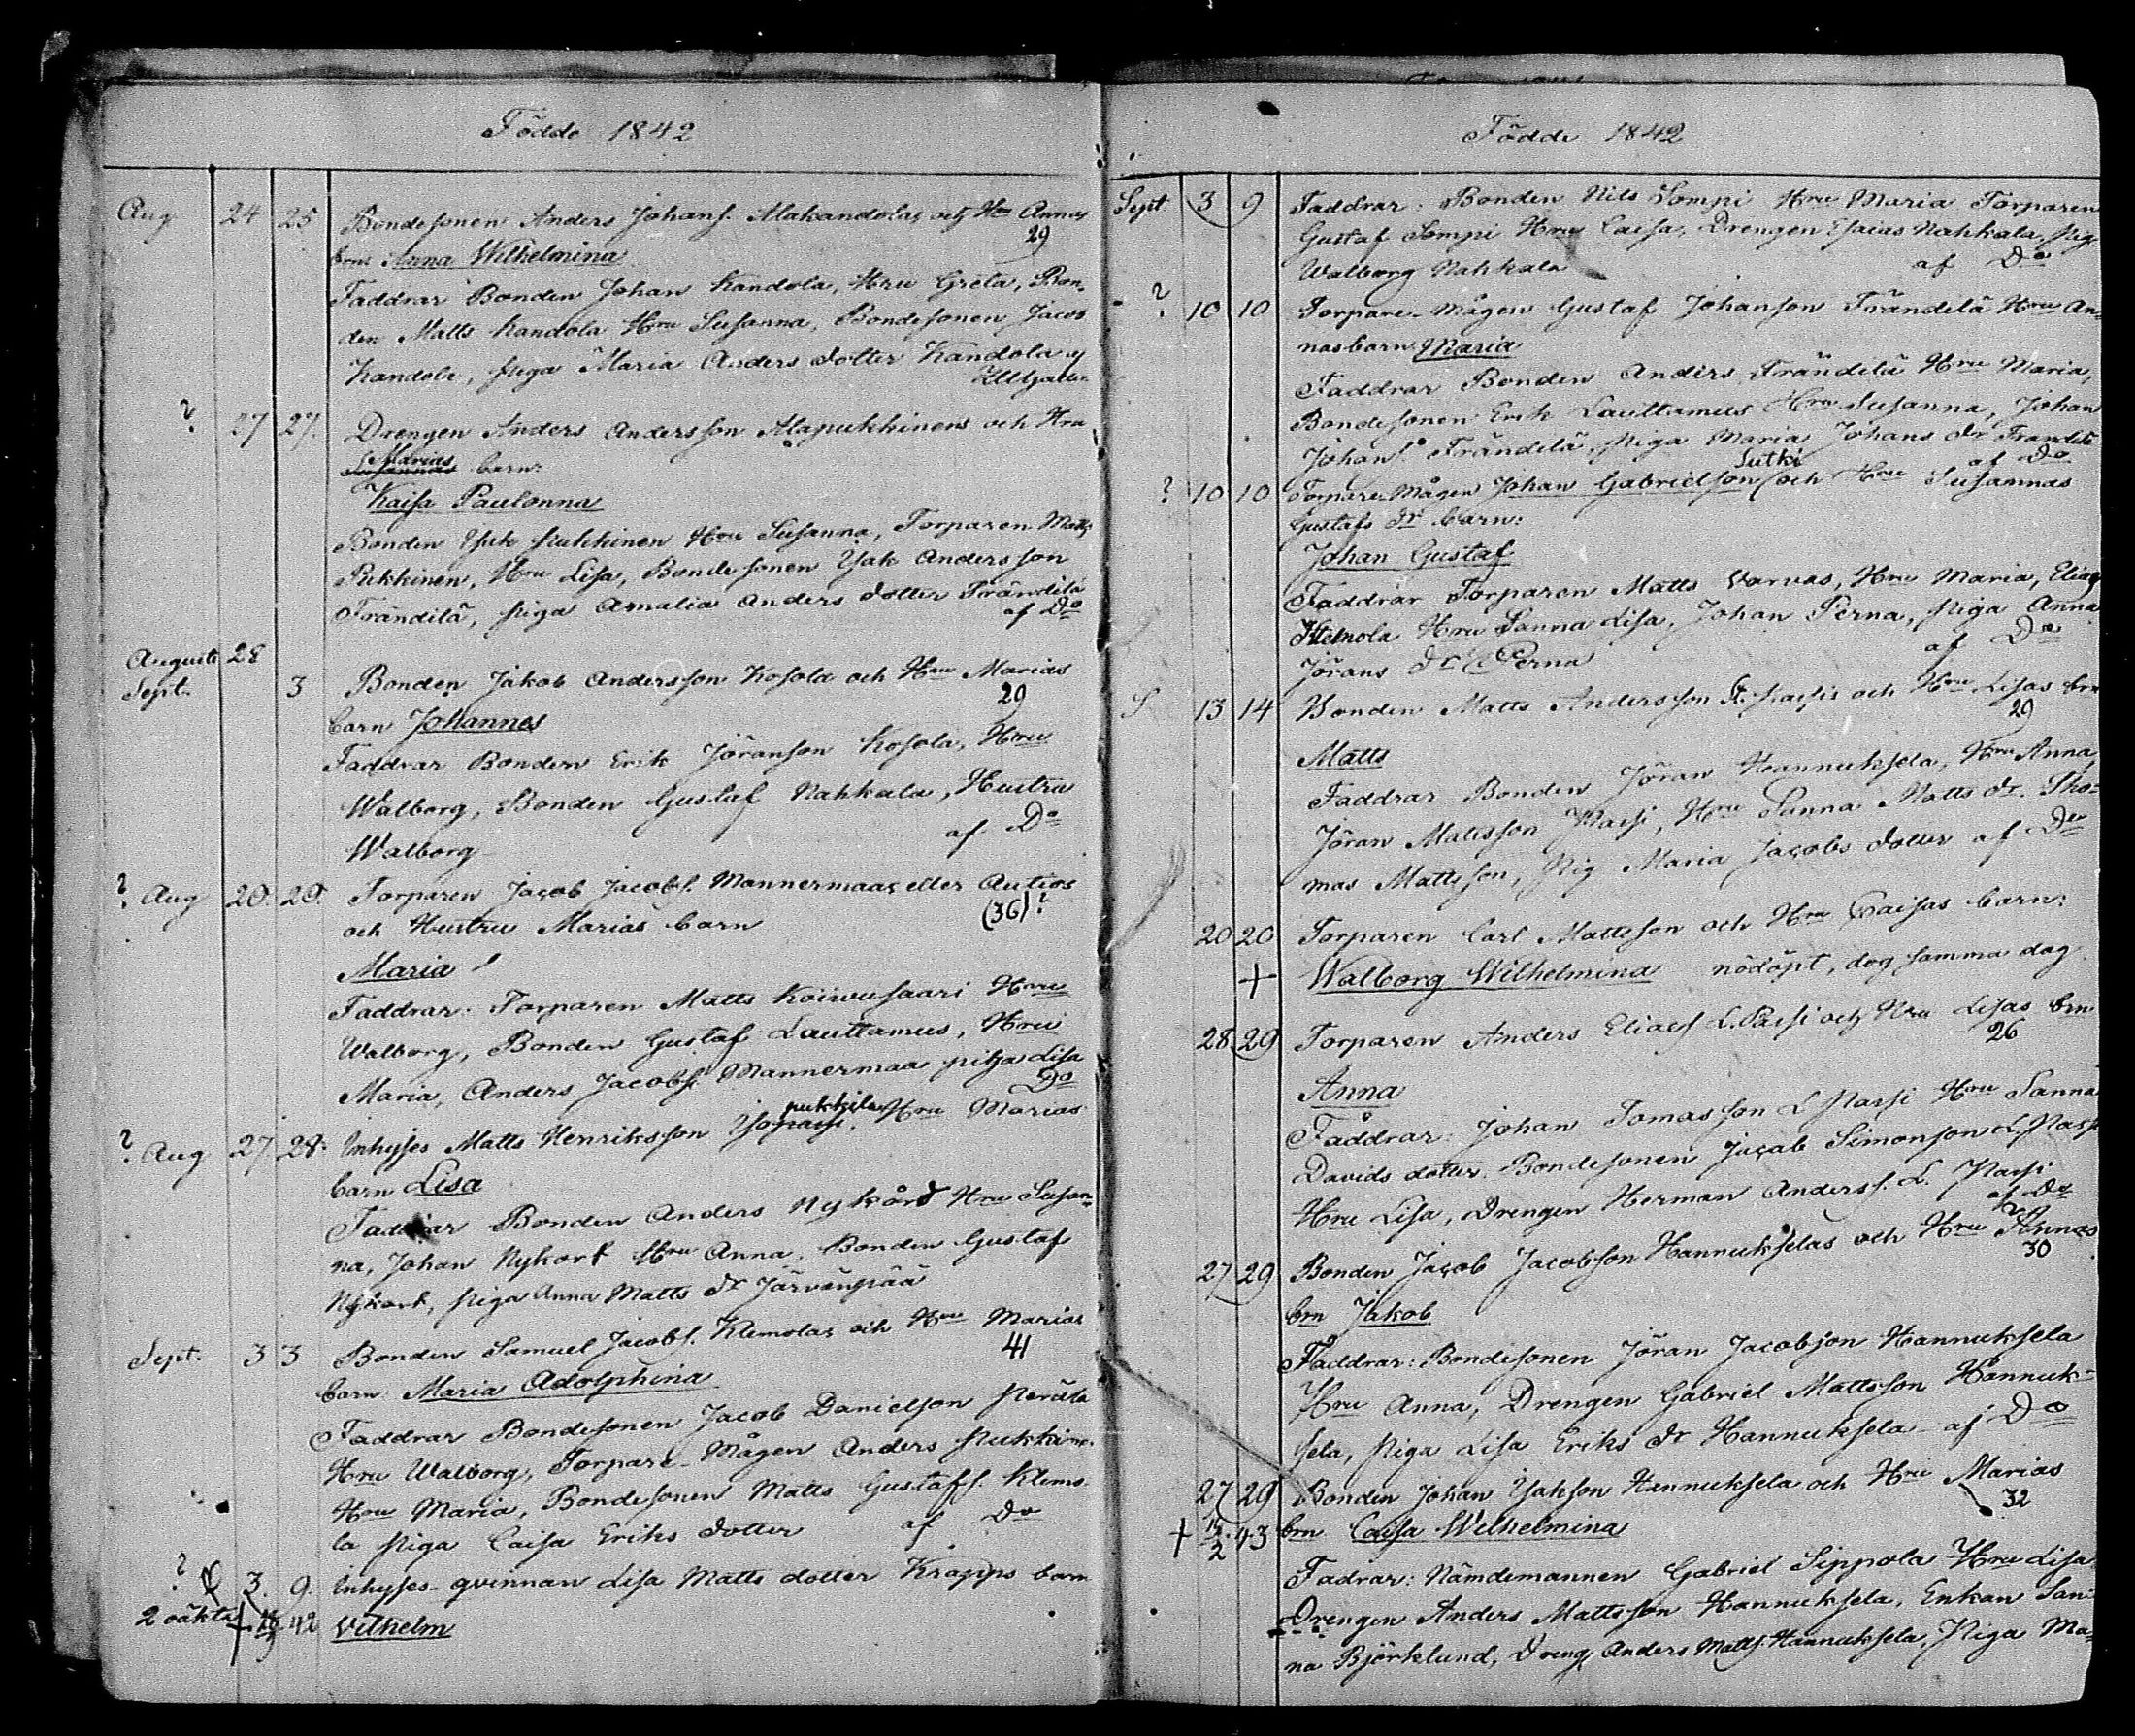 Födde 1842
Aug 24 25 Bondesonen Anders Johans. Alakandolas och Hru Annas
29
brn: Anna Wilhelmina
Faddrar Bonden Johan Kandola, Hru Greta, Bon-
den Matts Kandola Hru Susanna, Bondesonen Jacob
Kandola, piga Maria Anders dotter Kandola
? 27 27. Drengen Anders Andersson Alapukkinens och Hru
Marias
Susannas barn:
Kaisa Paulonna
Bonden Isak Pukkinen Hru Susanna, Torparen Matts
Pukkinen, Hru Lisa, Bondesonen Isak Andersson
Frändilä, piga Amalia Anders dotter Frändilä
af Do
Augusti 28
Sept. 3 Bonden Jakob Andersson Kosola och Hru Marias
29
barn Johannes
Faddrar Bonden Erik Jöranson Kosola, Hru
Walborg, Bonden Gustaf Nahkala, Hustru
Walborg af Do
? Aug 20. 20. Torparen Jacob Jacobs. Mannermaas eller Autios
och Hustru Marias barn (36)?
Maria
Faddrar: Torparen Matts Koiwusaari Hru
Walborg, Bonden Gustaf Lauttamus, Hru
Maria, Anders Jacobs. Mannermaa piga Lisa
Do
? Aug 27 28. Inhyses Matts Henriksson Isopassi, Hru Marias
barn Lisa
Faddrar Bonden Anders Nykård Hru Susan-
na, Johan Nykort Hru Anna. Bonden Gustaf
Nykort, piga Anna Matts dr Järvenpää
Sept. 3 3 Bonden Samuel Jacobs. Klemolas och Hru Marias
41
barn: Maria Adolphina
Faddrar Bondesonen Jacob Danielson Perälä
Hru Walborg, Torpare-Mågen Anders Pukkine
Hru Maria, Bondesonen Matts Gustafs. Klemo-
la Piga Caisa Eriks dotter af Do
? 3. 9. Inhyses-qvinnan Lisa Matts dotter Krapps barn
2 oäkta + 42 Vilhelm
Födde 1842
Sept. 3 9 Faddrar: Bonden Nils Sompi Hru Maria Torparen
Gustaf Sompi Hru Caisa, Drengen Esaias Nahkala, Pig.
Walborg Nahkala af Do
? 10 10 Torpare-Mågen Gustaf Johanson Frändilä Hru An-
nas barn Maria
Faddrar Bonden Anders Frändilä Hru Maria,
Bondesonen Erik Lauttamus Hru Susanna, Johan
Johans. Frändilä, Piga Maria Johans dr Frändilä
af Do
Lutki
? 10 10 Torpare Mågen Johan Gabrielson och Hru Susannas
Gustafs dr barn:
Johan Gustaf
Faddrar Torparen Matts Varvas, Hru Maria, Elias
Hru Sanna Lisa, Johan Perna, Piga Anna
Jörans dr Perna af Do
S 13 14 Bonden Matts Andersson St. Passis och Hru Lisas brn
29
Matts
Faddrar Bonden Jöran Hannuksela, Hru Anna,
Jöran Mattsson Passi, Hru Sanna Matts dr. Tho-
mas Mattsson, Pig Maria Jacobs dotter af Do
20 20 Torparen Carl Mattsson och Hru Caisas barn:
+ Walborg Wilhelmina nödöpt, dog samma dag
28 29 Torparen Anders Eliass L. Passi och Hru Lisas brn
26
Anna
Faddrar: Johan Tomasson L Passi Hru Sanna
Davids dotter. Bondesonen Jacob Simonson L. Passi
Hru Lisa, Drengen Herman Anderss. L. Passi
af Do
27 29 Bonden Jacob Jacobson Hannukselas och Hru Annas
30
brn Jakob
Faddrar: Bondesonen Jöran Jacobson Hannuksela
Hru Anna, Drengen Gabriel Mattsson Hannuk-
sela, Piga Lisa Eriks dr Hannuksela af Do
27 29 Bonden Johan Isakson Hannuksela och Hru Marias
32
+ 43 brn Caisa Wilhelmina
Fadrar: Nämdemannen Gabriel Sippola Hru Lisa
Drengen Anders Mattsson Hannuksela, Enkan San-
na Björklund, Dreng Anders Matts. Hannuksela, Piga Ma-